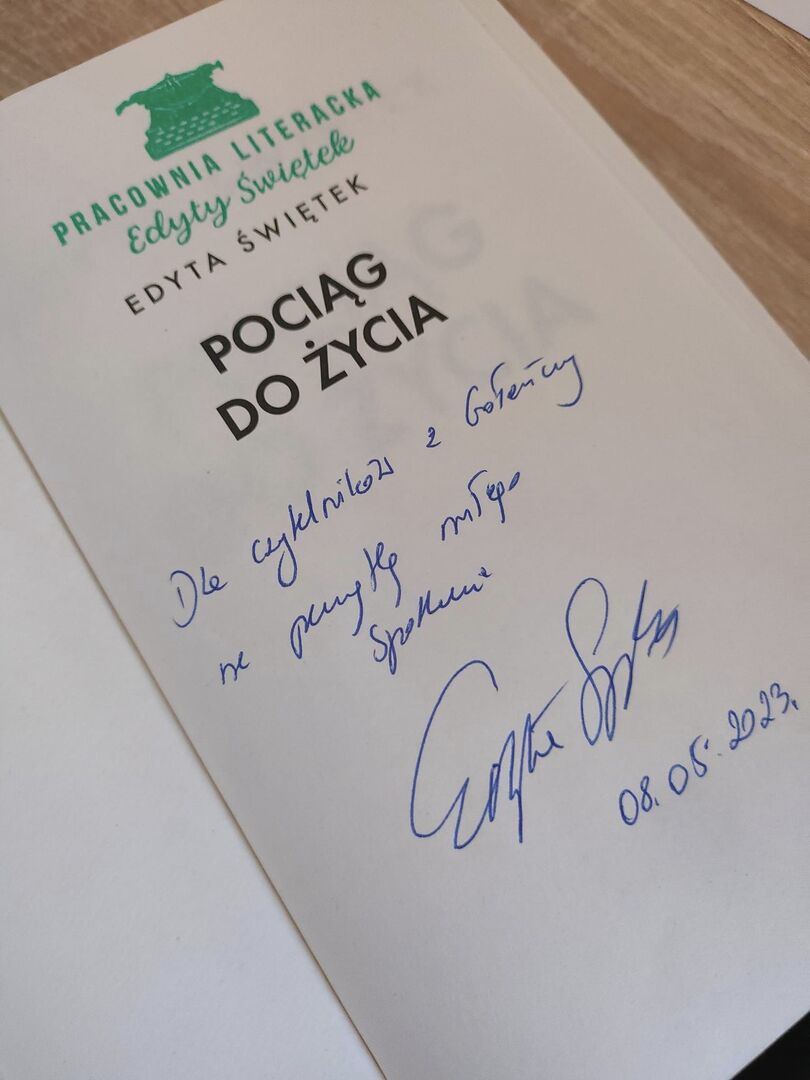 PRACOWNIA LITERACKA
Edyty Świętek
EDYTA ŚWIĘTEK
POCIĄG
DO ŻYCIA
Dla czytelników z Gołańczy
na pamiątkę miłego
spotkania
Edyta Świętek
08.05.2023.